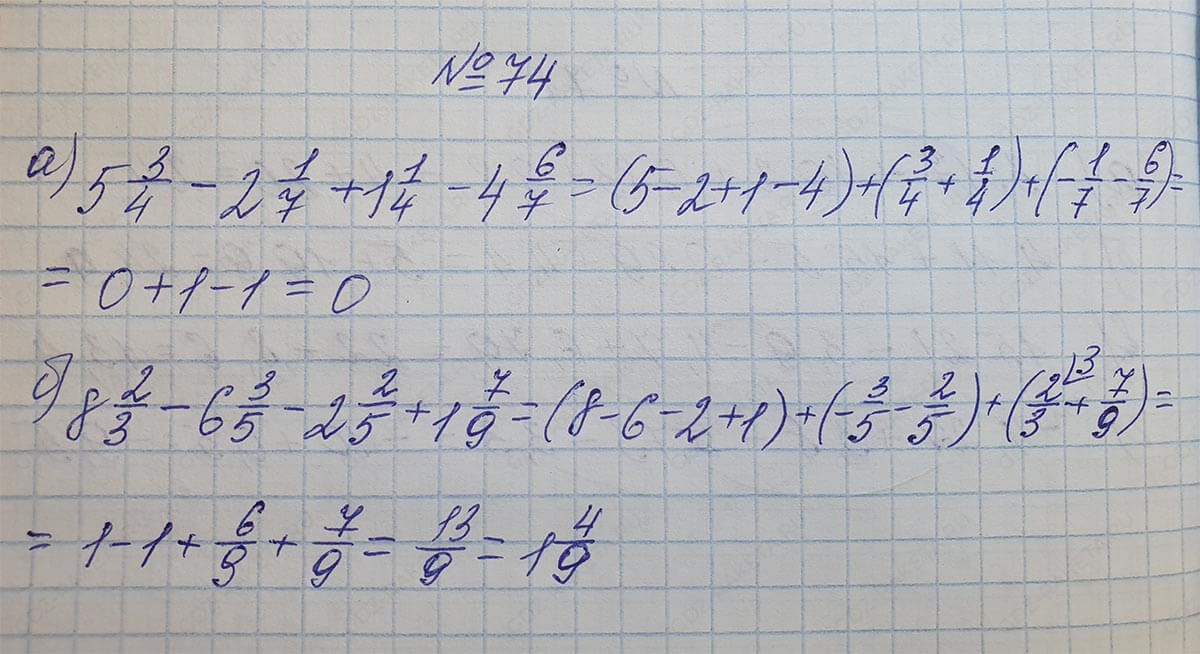 № 74
а) 5 3/4 − 2 1/7 + 1 1/4 − 4 6/7 = (5−2+1−4) + (3/4 + 1/4) + (−1/7 − 6/7) =
= 0 + 1 − 1 = 0
б) 8 2/3 − 6 3/5 − 2 2/5 + 1 7/9 = (8−6−2+1) + (−3/5 − 2/5) + (2/3 ⌊3 + 7/9) =
= 1 − 1 + 6/9 + 7/9 = 13/9 = 1 4/9